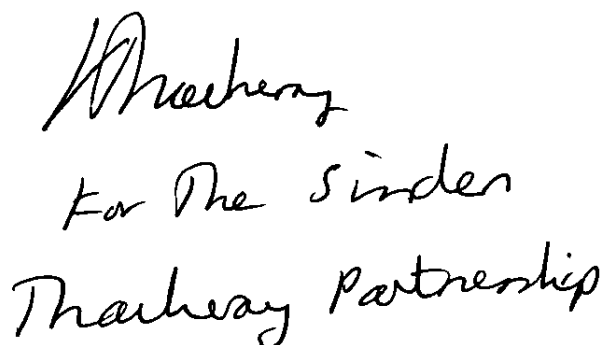 Thackeray
For The Sinden
Thackeray Partnership